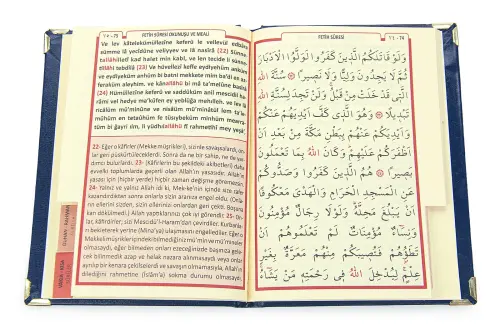 ٧٥ - 75
FETİH SÛRESİ OKUNUŞU ve MEALİ
Ve lev kâtelekümüllezîne keferû le vellevül edbâra
sümme lâ yecidûne veliyyev ve lâ nasîrâ (22) Sünne-
tallâhilletî kad halet min kabl, ve len tecide li sünneti-
llâhi tebdîlâ (23) Ve hüvellezî keffe eydiyehüm anküm
ve eydiyeküm anhüm bi batni mekkete mim ba'di en az-
feraküm aleyhim, ve kânallâhü bi mâ ta'melûne basîrâ
(24) Hümüllezîne keferû ve saddûküm anil mescidil ha-
râmi vel hedye ma'kûfen ey yeblüğa mehılleh, ve lev lâ
ricâlüm mü'minûne ve nisâüm mü'minâtül lem ta'le-
mûhüm en tetaûhüm fe tüsıybeküm minhüm mearra-
tüm bi ğayri ılm, li yüdhılallâhü fî rahmetihî mey yeşâ',
22- Eğer o kâfirler (Mekke müşrikleri), sizinle savaşsalardı, on-
lar geri püskürtüleceklerdi. Sonra da ne bir sahip, ne de yar-
dımcı bulurlardı. 23- (Kâfirlerin bu şekildeki akıbetleri) daha
evvelki toplumlarda geçerli olan Allah'ın yasasıdır. Allah'ın
yasası için (hiçbir yerde) hiçbir zaman değişme göremezsin.
24- Yalnız ve yalnız Allah idi ki, Mekke'nin içinde size zafer
kazandırdıktan sonra onlarla sizin aranızı engel oldu. (Onla-
rın ellerini sizden, sizin ellerinizi onlardan geri çekti. Boşuna
kan dökülmedi.) Allah yaptıklarınızı çok iyi görendir. 25- On-
lar, kâfirdirler; sizi Mescid-i Haram'dan çevirdiler. Kurbanla-
rı bekleterek yerine (Mina'ya) ulaşmasını engellediler. Eğer o
Mekke'de
٧٤ - 74
FETİH SÛRESİ
وَلَوْ قَاتَلَكُمُ الَّذِينَ كَفَرُوا لَوَلَّوُا الْاَدْبَارَ
ثُمَّ لَا يَجِدُونَ وَلِيًّا وَلَا نَصِيرًا سُنَّةَ اللّٰهِ
الَّتِى قَدْ خَلَتْ مِنْ قَبْلُ وَلَنْ تَجِدَ لِسُنَّةِ اللّٰهِ
تَبْدِيلًا وَهُوَ الَّذِى كَفَّ اَيْدِيَهُمْ عَنْكُمْ
وَاَيْدِيَكُمْ عَنْهُمْ بِبَطْنِ مَكَّةَ مِنْ بَعْدِ اَنْ
اَظْفَرَكُمْ عَلَيْهِمْ وَكَانَ اللّٰهُ بِمَا تَعْمَلُونَ
بَصِيرًا هُمُ الَّذِينَ كَفَرُوا وَصَدُّوكُمْ
عَنِ الْمَسْجِدِ الْحَرَامِ وَالْهَدْىَ مَعْكُوفًا
اَنْ يَبْلُغَ مَحِلَّهُ وَلَوْلَا رِجَالٌ مُؤْمِنُونَ
وَنِسَاءٌ مُؤْمِنَاتٌ لَمْ تَعْلَمُوهُمْ اَنْ
تَطَؤُهُمْ فَتُصِيبَكُمْ مِنْهُمْ مَعَرَّةٌ بِغَيْرِ
عِلْمٍ لِيُدْخِلَ اللّٰهُ فِى رَحْمَتِهِ مَنْ يَشَاءُ